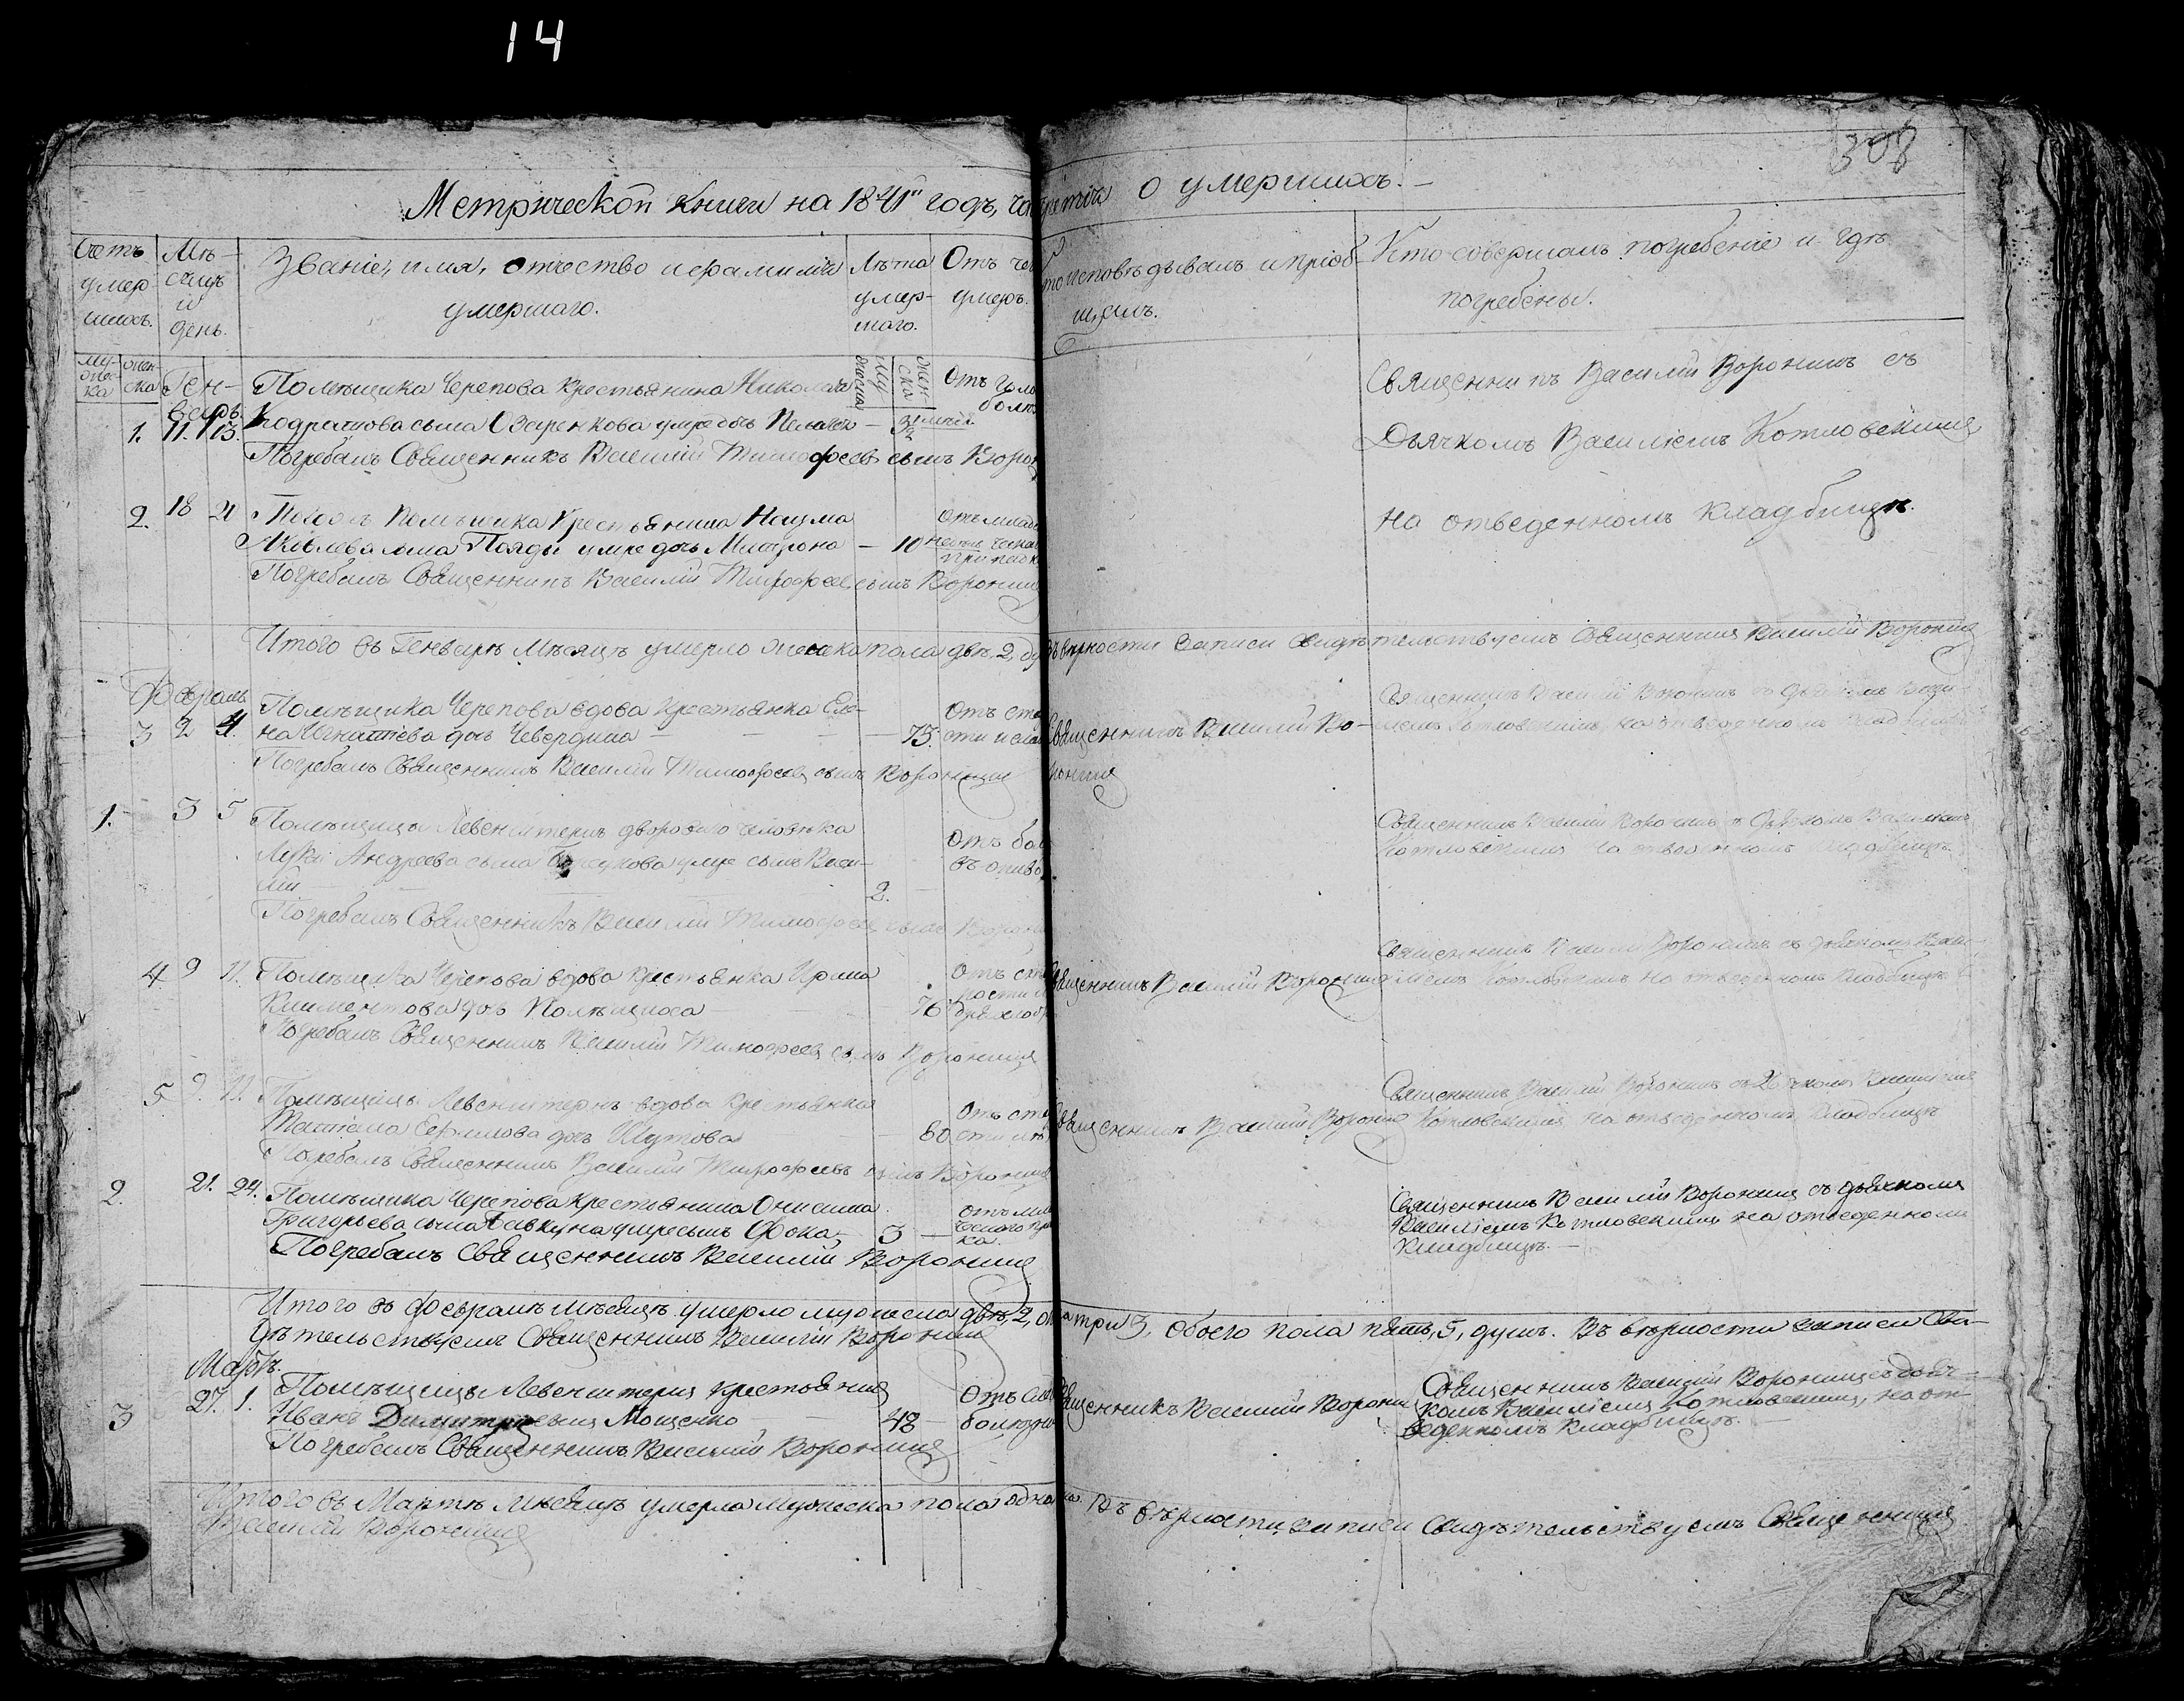 14
308
Метрической книги на 1841й годъ, часть третія о умершихъ.
Счетъ умершихъ.
Мѣсяцъ и день.
Званіе, имя, отчество и фамилія умершаго.
Лѣта умершаго.
Отъ чего умеръ.
Кто исповѣдывалъ и пріобщалъ.
Кто совершалъ погребеніе и гдѣ погребены.
Генваръ.
Помѣщика Черепова крестьянина Николая
1. 11. 13. сына Озеренкова умре дочь
Погребалъ Священникъ Василій Тимофеевъ сынъ
Священникъ Василій Воронинъ съ
Дьячкомъ Василіемъ Котловскимъ
на отведенномъ кладбищѣ.
2. 18 21 Тогожъ Помѣщика Крестьянина Наума
Яковлева сына умре дочь Матрона — 10
Погребалъ Священникъ Василій Тимофеевъ сынъ Воронинъ
Итого въ Генварѣ Мѣсяцѣ умерло женска пола двѣ, 2,
вѣрности записи свидѣтельствуемъ Священникъ Василій Воронинъ
Февраль
Помѣщика Черепова вдова крестьянка Еле-
3 2 4 на Игнатіева дочь — 75.
Погребалъ Священникъ Василій Тимофеевъ сынъ Воронинъ
Священникъ Василій Во-
ронинъ
Священникъ Василій Воронинъ съ дьячкомъ Васи-
ліемъ Котловскимъ, на отведенномъ кладбищѣ
1. 3 5 Помѣщицы Левенштернъ двороваго человѣка
Луки Андреева сына умре сынъ Васи-
лій 2.
Погребалъ Священникъ Василій Тимофеевъ сынъ
Священникъ Василій Воронинъ съ Дьячкомъ Василіемъ
Котловскимъ на отведенномъ кладбищѣ
4 9 11. Помѣщика Черепова вдова крестьянка Ирина
Климентова дочь 76
Погребалъ Священникъ Василій Тимофеевъ сынъ Воронинъ
Священникъ Василій Воронинъ
Священникъ Василій Воронинъ съ дьячкомъ Васи-
ліемъ Котловскимъ на отведенномъ кладбищѣ
5. 9. 11. Помѣщицы Левенштернъ вдова крестьянка
Татіана Ефимова дочь Шутова — 80
Погребалъ Священникъ Василій Тимофеевъ сынъ Воронинъ
Священникъ Василій Воронинъ
Священникъ Василій Воронинъ съ Дьячкомъ Василіемъ
Котловскимъ на отведенномъ кладбищѣ
2. 21. 24. Помѣщика Черепова крестьянина Онисима
Григорьева сына умре сынъ Фока, 3 —
Погребалъ Священникъ Василій Воронинъ
Священникъ Василій Воронинъ съ дьячкомъ
Василіемъ Котловскимъ на отведенномъ
Кладбищѣ. —
Итого въ Февралѣ мѣсяцѣ умерло мужеска двѣ, 2, три 3, обоего пола пять, 5, душъ. Въ вѣрности записи Сви-
дѣтельствуемъ Священникъ Василій Воронинъ
Мартъ.
27. 1. Помѣщицы Левенштернъ крестьянинъ
3 Иванъ Димитріевъ Мощенко 48
Погребалъ Священникъ Василій Воронинъ
Священникъ Василій Воронинъ
Священникъ Василій Воронинъ съ дьяч-
комъ Василіемъ Котловскимъ, на от-
веденномъ кладбищѣ.
Итого въ Мартѣ мѣсяцѣ умерла мужеска пола одна Въ вѣрности записи свидѣтельствуемъ Священникъ
Василій Воронинъ